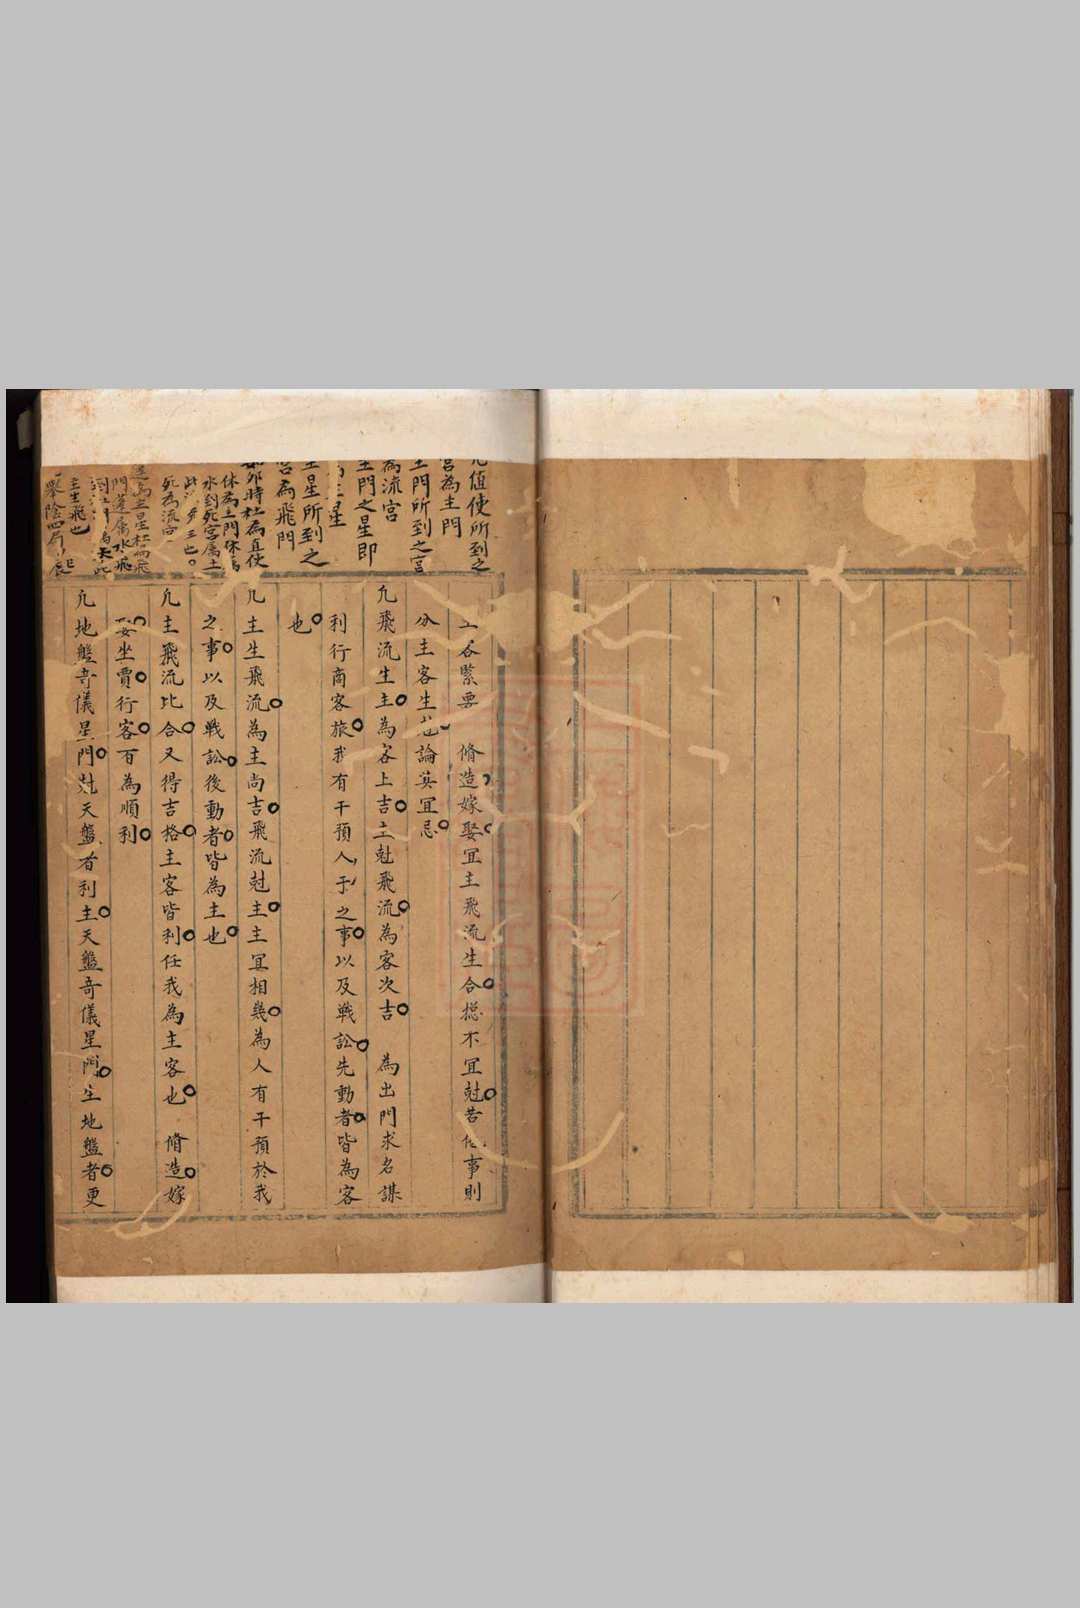 值使所到之
宮為主門
主門所到之宮
為流宮
主門之星即
主星
主星所到之
宮為飛門
外時杜為直使
休為主門休
水到死宮属土
此
死為流宮
門蓬属水飛
主生飛也
舉陰四局
客緊要 脩造嫁娶宜主飛流生合搃不宜尅若他事則
分主客生尅論其宜忌
凢飛流生主為客上吉主尅飛流為客次吉 為出門求名謀
利行商客旅我有干預人于之事以及戰訟先動者皆為客
也
凢主生飛流為主尚吉飛流尅主主宜相幾為人有干預於我
之事以及戰訟後動者皆為主也
凢主飛流比合又得吉格主客皆利任我為主客也 脩造嫁
娶坐賈行客百為順利
凢地盤竒儀星門尅天盤者利主天盤竒儀星門生地盤者更